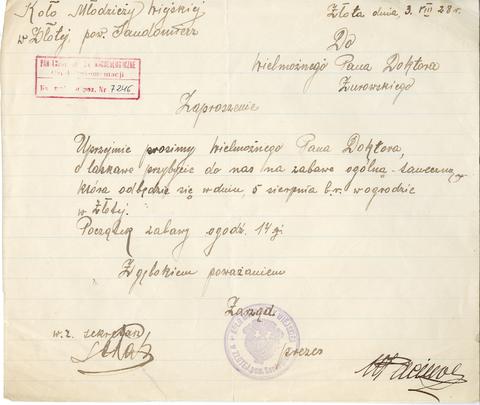 Koło Młodzieży Wiejskiej
w Złotej pow. Sandomierz
Złota dnia, 3. VIII 28 r.
Do
Wielmożnego Pana Doktora
Żurowskiego
PAŃSTWOWE MUZEUM ARCHEOLOGICZNE
Dział Dokumentacji
poz. Nr 7246
Zaproszenie
Uprzejmie prosimy Wielmożnego Pana Doktora,
o łaskawe przybycie do nas na zabawę ogólną - taneczną,
która odbędzie się w dniu, 5 sierpnia b.r. w ogrodzie
w Złotej.
Początek zabawy o godź. 14 ej.
Z głębokiem poważaniem
Zarząd.
w.z. sekretarz
prezes
KOŁO MŁODZIEŻY WIEJSKIEJ